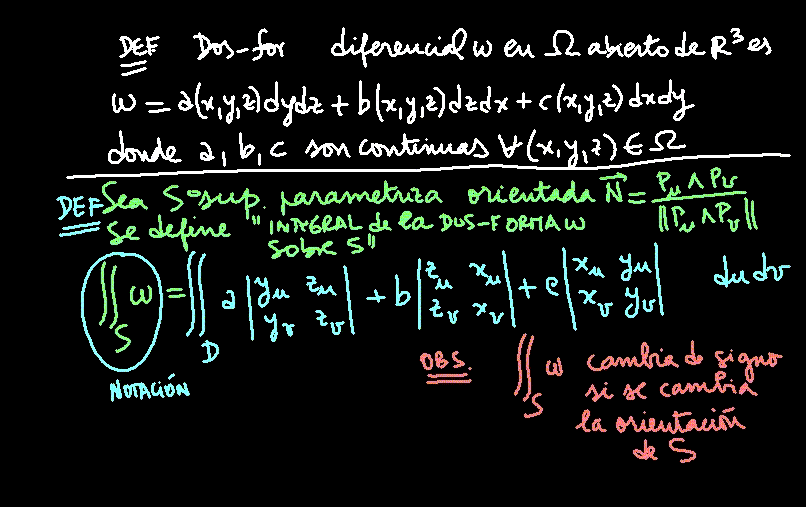 DEF Dos-for diferencial w en Ω abierto de R³ es
w = a(x,y,z)dydz + b(x,y,z)dzdx + c(x,y,z)dxdy
donde a, b, c son continuas ∀(x,y,z) ∈ Ω
DEF Sea S=sup. parametriza orientada N⃗ = Pu ∧ Pv / ||Pu ∧ Pv||
se define "INTEGRAL de la DOS-FORMA w
sobre S"
∬_S w = ∬_D a |yu zu; yv zv| + b |zu xu; zv xv| + c |xu yu; xv yv| du dv
NOTACIÓN
OBS. ∬_S w cambia de signo
si se cambia
la orientación
de S